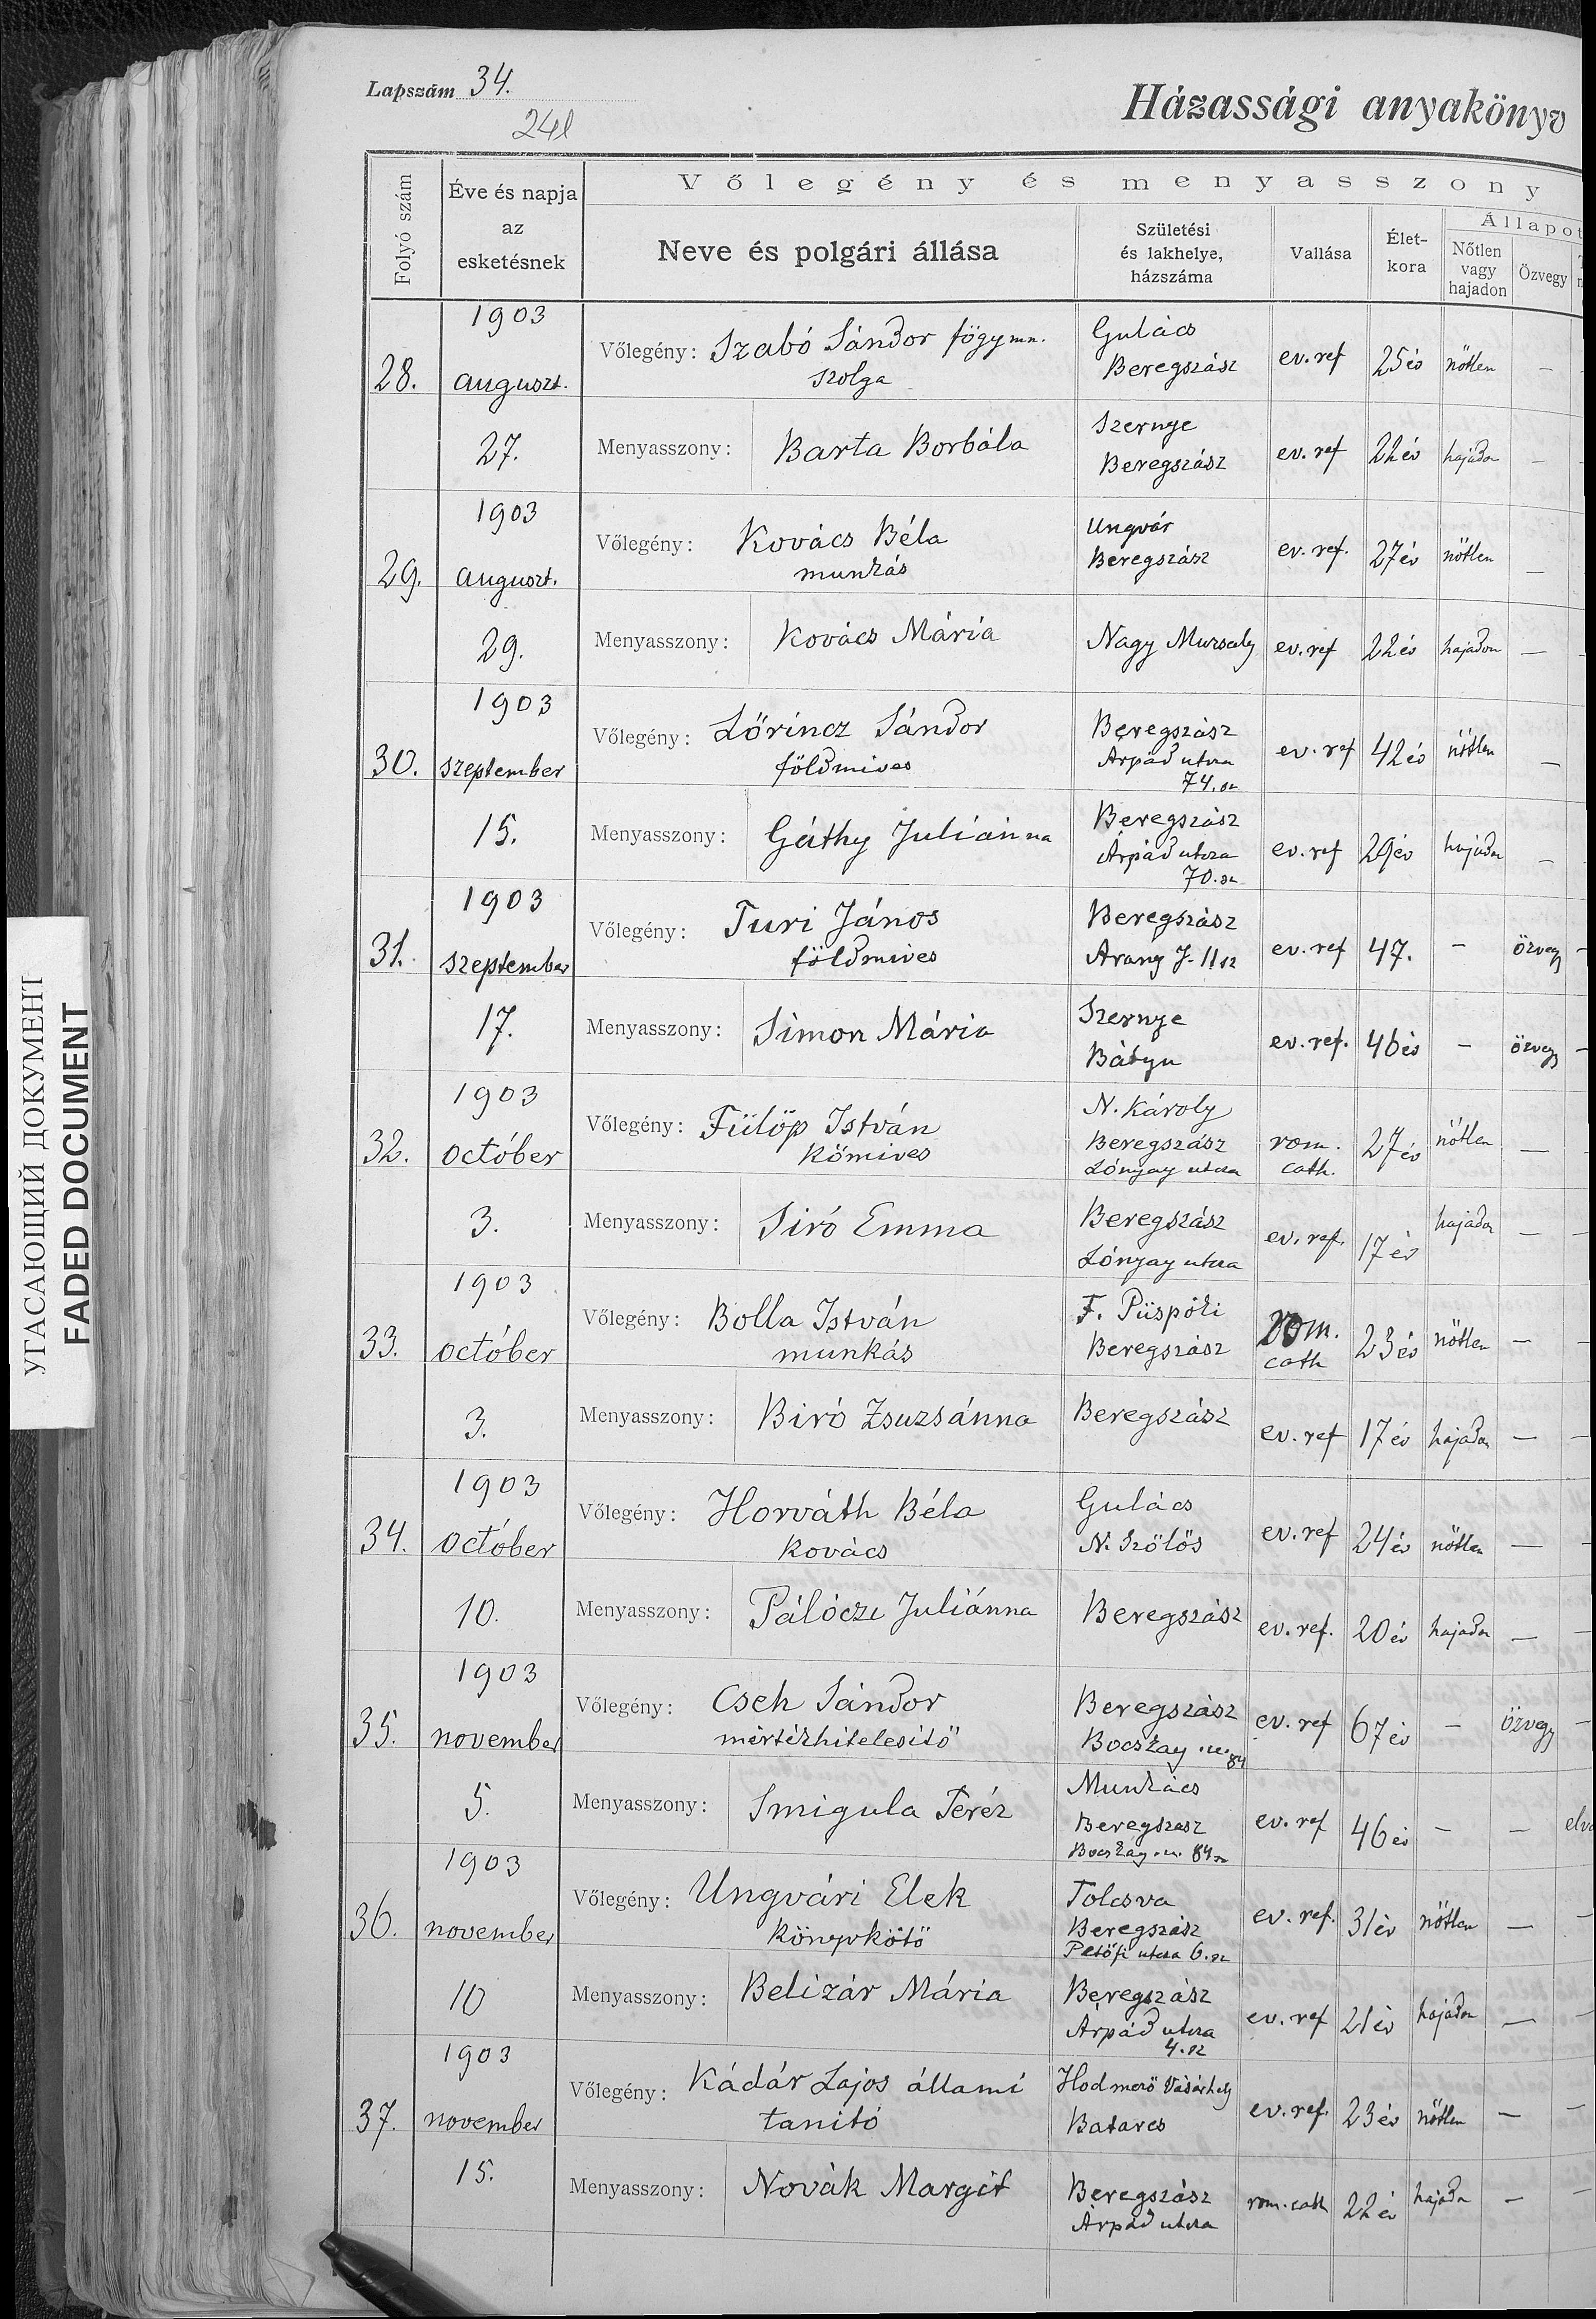 Lapszám 34.
241
Házassági anyakönyv
Folyó szám
Éve és napja az esketésnek
Vőlegény és menyasszony
Neve és polgári állása
Születési és lakhelye, házszáma
Vallása
Élet-kora
Állapot
Nőtlen vagy hajadon
Özvegy
1903
28. auguszt. 27.
Vőlegény: Szabó Sándor főgymn. szolga
Gulács Beregszász ev. ref 25 év nőtlen —
Menyasszony: Barta Borbála
Szernye Beregszász ev. ref 22 év hajadon —
1903
29. auguszt. 29.
Vőlegény: Kovács Béla munkás
Ungvár Beregszász ev. ref. 27 év nőtlen —
Menyasszony: Kovács Mária
Nagy Muzsaly ev. ref 22 év hajadon —
1903
30. szeptember 15.
Vőlegény: Lőrincz Sándor földmives
Beregszász Árpád utcza 74. sz ev. ref 42 év nőtlen —
Menyasszony: Gáthy Juliánna
Beregszász Árpád utcza 70. sz ev. ref 29 év hajadon —
1903
31. szeptember 17.
Vőlegény: Turi János földmives
Beregszász Arany J. 11 sz ev. ref 47. — özvegy
Menyasszony: Simon Mária
Szernye Bátyu ev. ref. 46 év — özvegy
1903
32. október 3.
Vőlegény: Fülöp István Kőmives
N. Károly Beregszász Lónyay utcza rom. cath. 27 év nőtlen —
Menyasszony: Siró Emma
Beregszász Lónyay utcza ev. ref. 17 év hajadon —
1903
33. október 3.
Vőlegény: Bolla István munkás
F. Püspöki Beregszász rom. cath 23 év nőtlen —
Menyasszony: Biró Zsuzsánna
Beregszász ev. ref 17 év hajadon —
1903
34. október 10.
Vőlegény: Horváth Béla Kovács
Gulács N. Szőlős ev. ref 24 év nőtlen —
Menyasszony: Pálóczi Juliánna
Beregszász ev. ref. 20 év hajadon —
1903
35. november 5.
Vőlegény: Cseh Sándor mértékhitelesitő
Beregszász Bocskay u. 84 ev. ref 67 év — özvegy
Menyasszony: Smigula Teréz
Munkács Beregszász Bocskay u. 84 sz ev. ref 46 év — — elvá
1903
36. november 10
Vőlegény: Ungvári Elek Könyvkötő
Tolcsva Beregszász Petőfi utcza 6. sz ev. ref. 31 év nőtlen —
Menyasszony: Belizár Mária
Beregszász Árpád utcza 4. sz ev. ref 21 év hajadon —
1903
37. november 15.
Vőlegény: Kádár Lajos állami tanitó
Hodmező Vásárhely Batarcs ev. ref. 23 év nőtlen —
Menyasszony: Novák Margit
Beregszász Árpád utcza rom. cath 22 év hajadon —
УГАСАЮЩИЙ ДОКУМЕНТ
FADED DOCUMENT